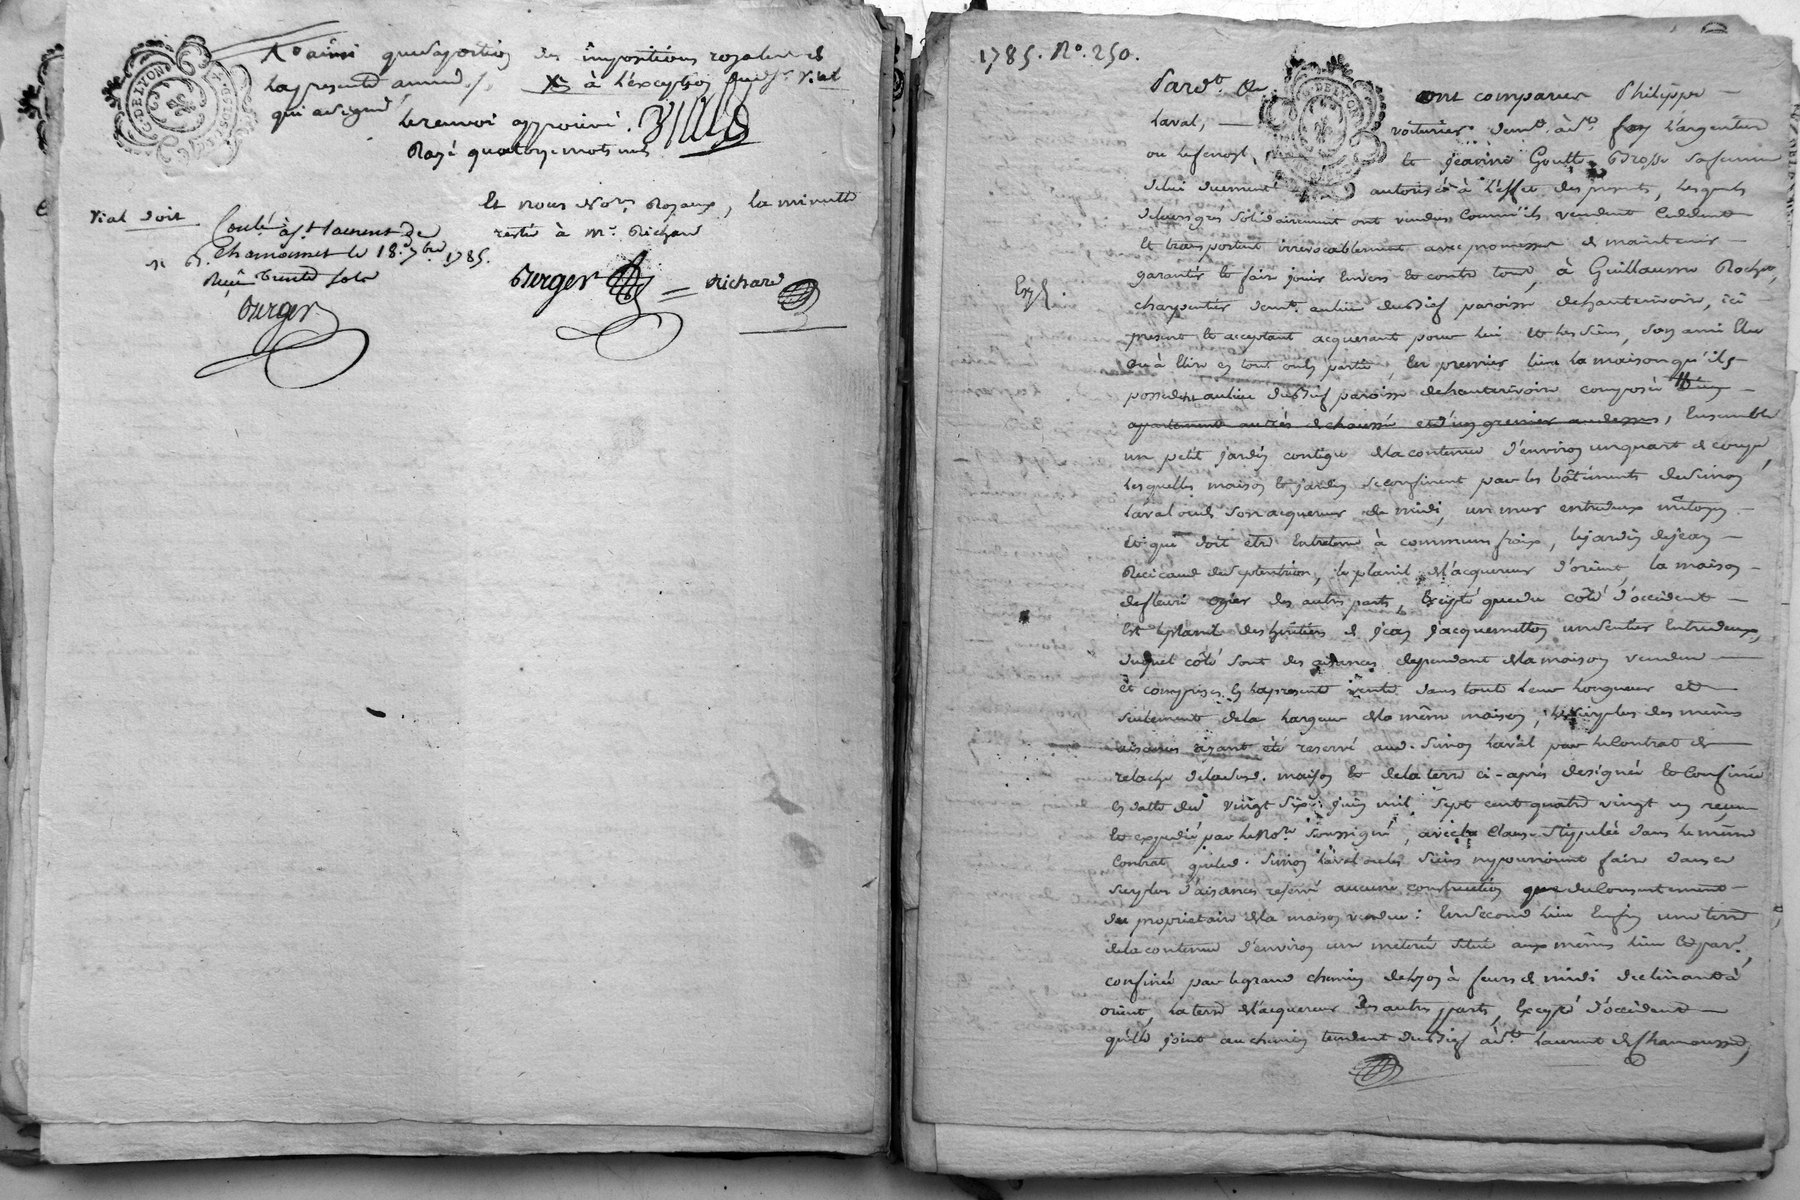 ainsi que la portion des impositions royales de
la presente année. à l'exception dud. Sr. Vial
qui a signé
le renvoi approuvé. Vial
Rayé quatorze mots nuls
Et nous Nores. Royaux, la minutte
restée à Me. Richard
Vial doit
Conlé à St. Laurent de
Chamousset le 18e. 7bre 1785.
Reçu trente sols
Berger
Berger Richard
G. DE LYON
1785. No. 250.
Pardt. &
ont comparus Philippe
Laval, voiturier demt. à St. foy l'argentiere
ou Lesenost, et Jeanne Goutte Brosse sa femme
de lui duement autorisée à l'effet des presentes, lesquels
de leurs grés solidairement ont vendus comme ils vendent cedent
Et transportent irrévocablement avec promesse de maintenir
garantir et faire jouir Envers et contre tous, à Guillaume Rochet,
Exp.
charpentier demt. au lieu du Bief paroisse de hauterivoire, ici
present et acceptant acquerant pour lui et les siens, son ami Elu
ou à Elire en tout ou en partie, En premier lieu la maison qu'ils
possedent au lieu du Bief paroisse de hauterivoire composée d'un
apartement au rés de chaussé et d'un grenier au dessus, Ensemble
un petit jardin contigu de la contenue d'environ un quart de coupé,
Lesquelles maison et jardin se confinent par les bâtiments de Simon
Laval oud. son acquereur de midi, un mur entredeux mitoyen
Et qui doit être Entretenu à communs fraix, le jardin de Jean
de septentrion, le planil de l'acquereur d'orient, la maison
de fleuri ogier des autres parts, Excepté que du coté d'occident
Est le planil des heritiers de Jean Jacquemetton un sentier Entredeux,
duquel coté sont des aisances dependant de la maison vendue
et comprises en la presente vente dans toute leur longueur et
seulement de la largeur de la même maison, le surplus des mêmes
aisances ayant été reservé aud. Simon Laval par le contrat de
relache de lad. maison et de la terre ci-après designée et Confinée
en datte du vingt six juin mil sept cent quatre vingt un reçu
Et expedié par le Nore. soussigné, avec la Clause stipulée dans le même
Contrat que led. Simon Laval ou les siens ny pourroient faire dans ce
surplus d'aisances reservé aucune construction que du Consentement
du proprietaire de la maison vendue: En second lieu Enfin une terre
de la contenue d'environ un meterée située aux mêmes lieu et par.,
confinée par le grand chemin de Lyon à feurs de midi declinant à
orient, la terre de l'acquereur des autres parts, Excepté d'occident
qu'elle joint au chemin tendant du Bief à St. Laurent de Chamousset,